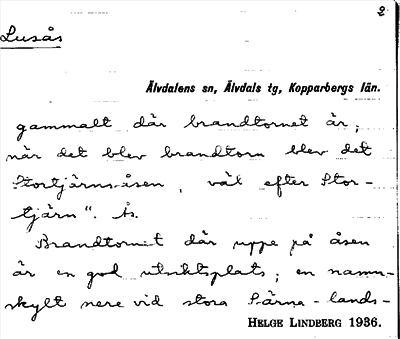 2
Lusås
Älvdalens sn, Älvdals tg, Kopparbergs län.
gammalt där brandtornet är;
när det blev brandtorn blev det
Stortjärnsåsen, väl efter Stor-
tjärn". Ås.
Brandtornet där uppe på åsen
är en god utsiktsplats; en namn-
skylt nere vid stora Särna-lands-
HELGE LINDBERG 1936.